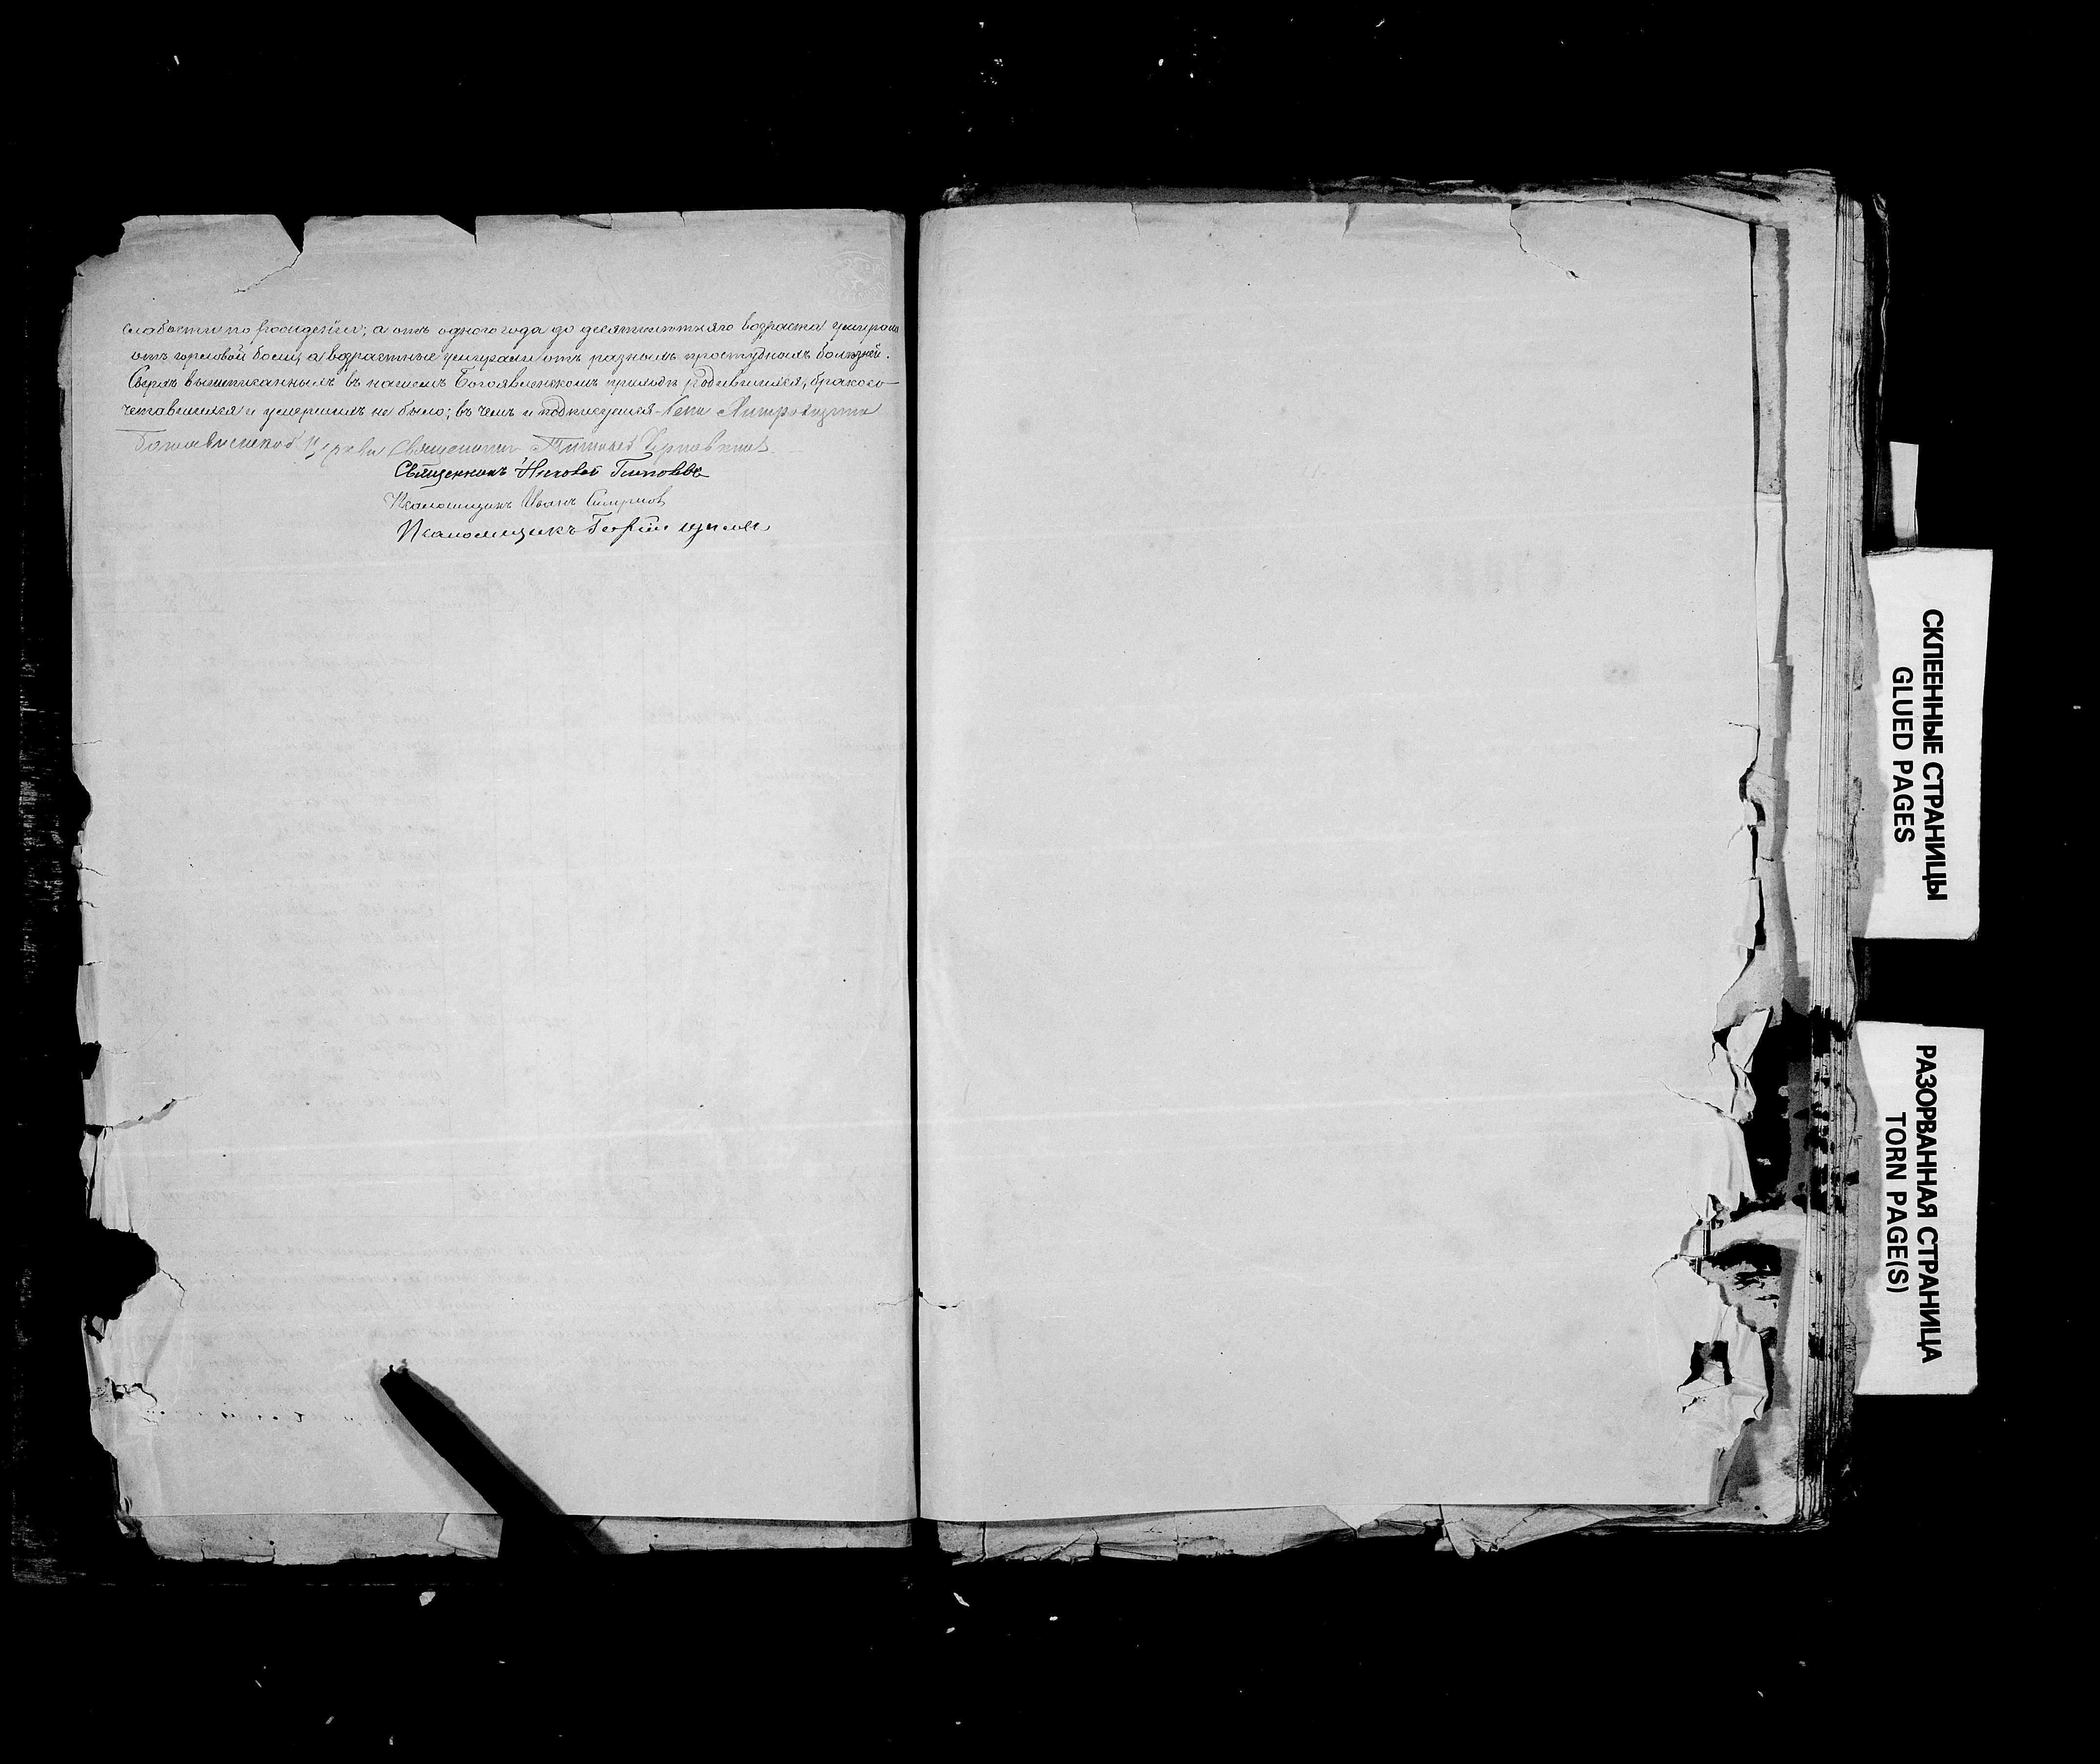 слабости по рождении; а отъ одного года до десятилетняго возраста умирали
отъ горловой боли, а возрастные умирали отъ разныхъ простудныхъ болѣзней.
Сверхъ вышеписанныхъ въ нашемъ Богоявленскомъ приходѣ родившихся, бракосо-
четавшихся и умершихъ не было; въ чемъ и подписуемся
Богоявленской Церкви Священникъ
Священникъ
Псаломщикъ Иванъ Смирнов
Псаломщикъ Георгій
СКЛЕЕННЫЕ СТРАНИЦЫ
GLUED PAGES
РАЗОРВАННАЯ СТРАНИЦА
TORN PAGE(S)